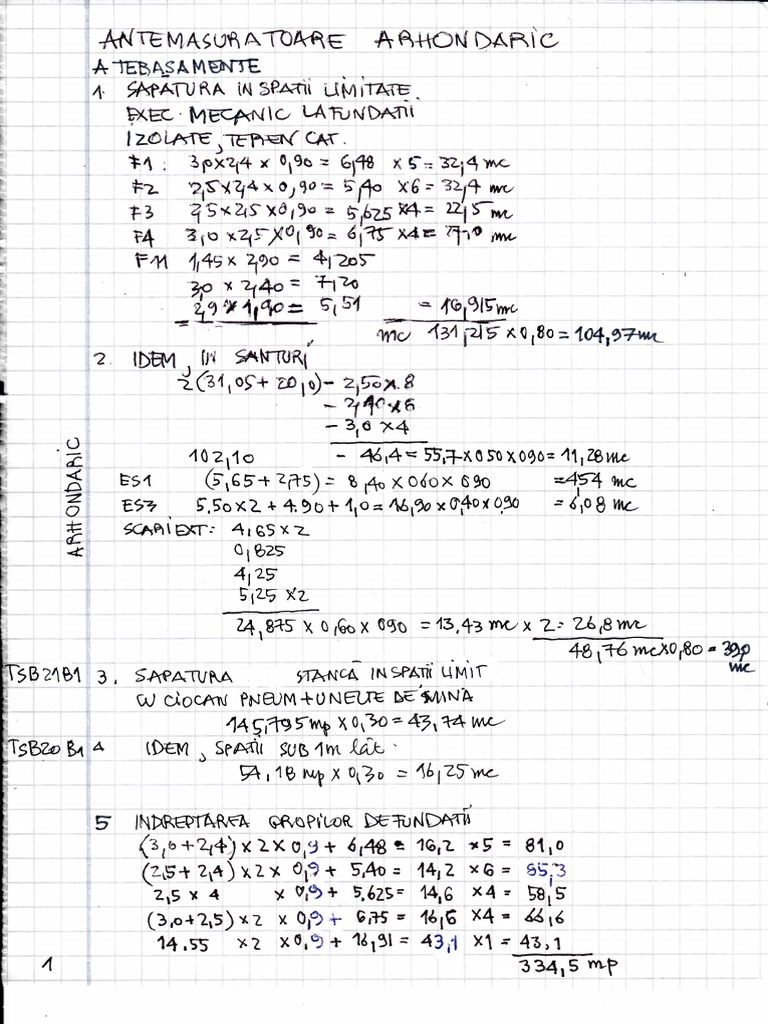 ANTEMASURATOARE ARHONDARIC
A TEBASAMENTE
1. SAPATURA IN SPATII LIMITATE.
EXEC. MECANIC LA FUNDATII
IZOLATE, TEREN CAT.
F1: 3,0 x 2,4 x 0,90 = 6,48 x 5 = 32,4 mc
F2 2,5 x 2,4 x 0,90 = 5,40 x 6 = 32,4 mc
F3 2,5 x 2,5 x 0,90 = 5,625 x 4 = 22,5 mc
F4 3,0 x 2,5 x 0,90 = 6,75 x 4 = 27,0 mc
F11 1,45 x 2,90 = 4,205
3,0 x 2,40 = 7,20
2,9 x 1,90 = 5,51 = 16,915 mc
mc 131,215 x 0,80 = 104,97 mc
2. IDEM, IN SANTURI
2(31,05 + 20,0) - 2,50 x 8
- 2,40 x 6
- 3,0 x 4
102,10 - 46,4 = 55,7 x 0,50 x 0,90 = 11,28 mc
ES1 (5,65 + 2,75) = 8,40 x 0,60 x 0,90 = 4,54 mc
ES3 5,50 x 2 + 4.90 + 1,0 = 16,90 x 0,40 x 0,90 = 6,08 mc
SCARI EXT: 4,65 x 2
0,825
4,25
5,25 x 2
24,875 x 0,60 x 0,90 = 13,43 mc x 2 = 26,8 mc
48,76 mc x 0,80 = 39,0
mc
ARHONDARIC
TSB21B1 3. SAPATURA STANCĂ IN SPATII LIMIT
CU CIOCAN PNEUM + UNELTE DE MINA
145,795 mp x 0,30 = 43,74 mc
TSB20 B1 4 IDEM, SPATII SUB 1m lăt.
54,18 mp x 0,30 = 16,25 mc
5 INDREPTAREA GROPILOR DE FUNDATII
(3,0 + 2,4) x 2 x 0,9 + 6,48 = 16,2 x 5 = 81,0
(2,5 + 2,4) x 2 x 0,9 + 5,40 = 14,2 x 6 = 85,3
2,5 x 4 x 0,9 + 5,625 = 14,6 x 4 = 58,5
(3,0 + 2,5) x 2 x 0,9 + 6,75 = 16,6 x 4 = 66,6
14.55 x 2 x 0,9 + 16,91 = 43,1 x 1 = 43,1
334,5 mp
1